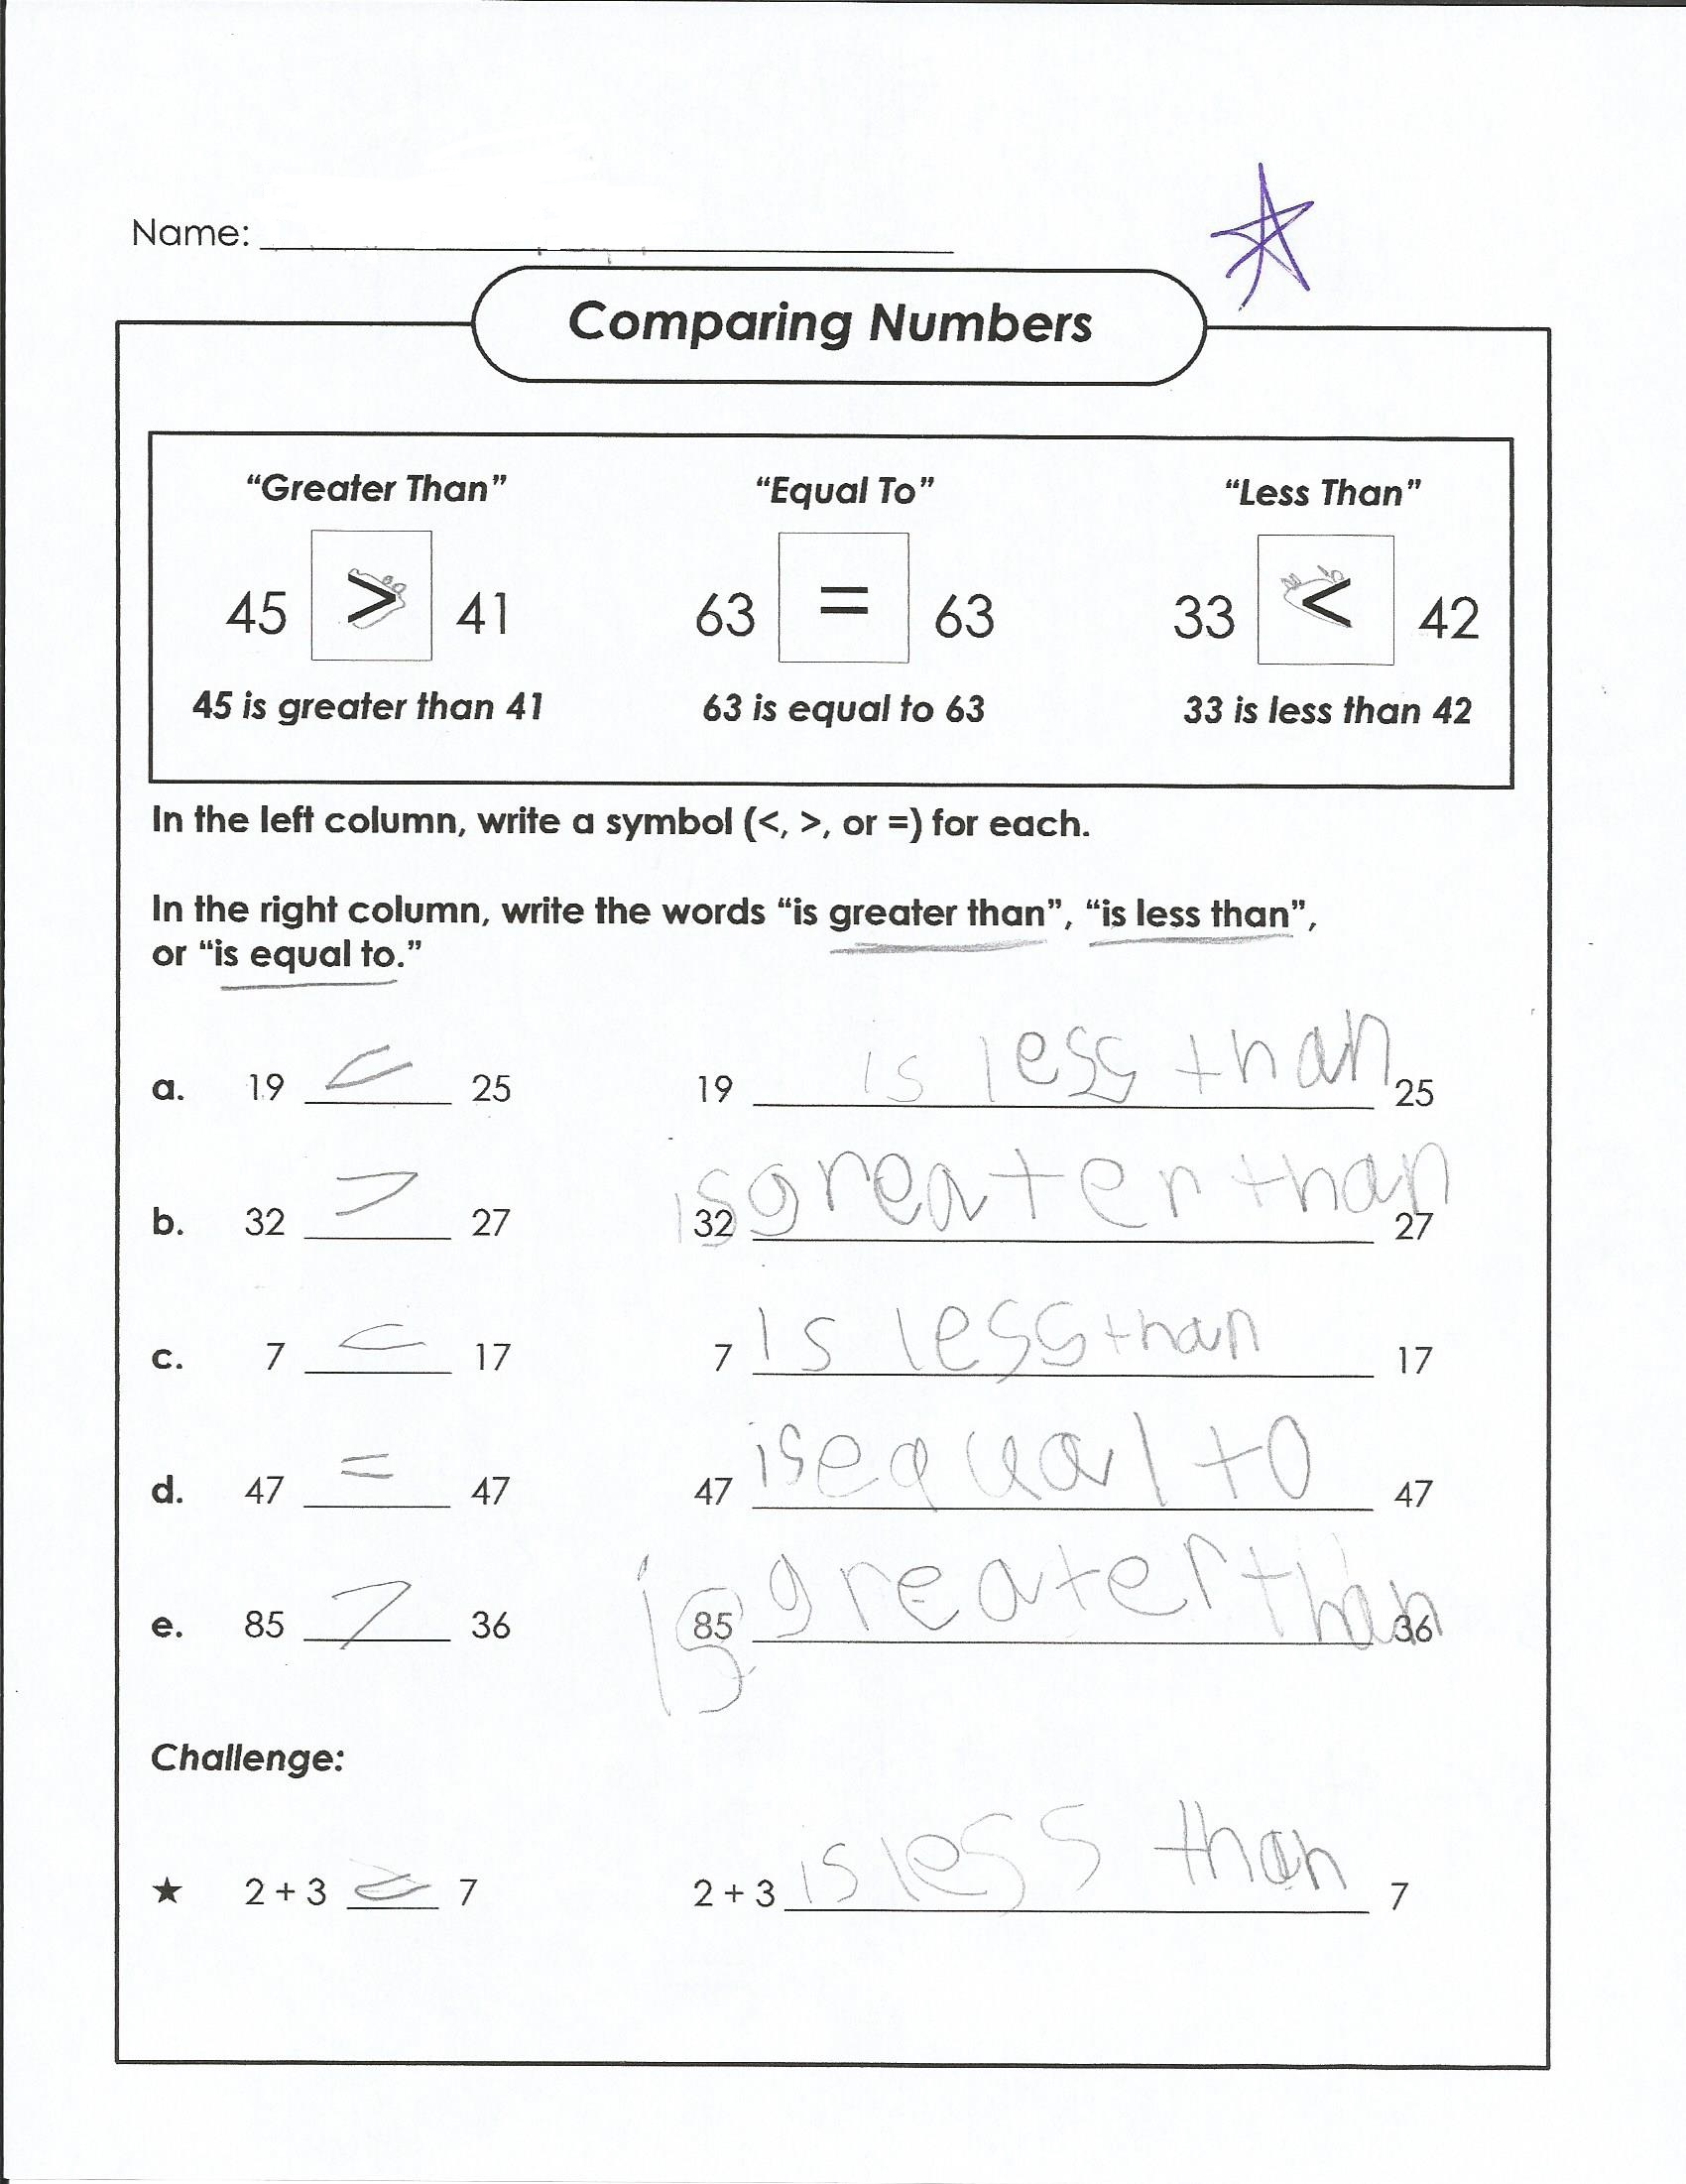 Name:
Comparing Numbers
“Greater Than” “Equal To” “Less Than”
45 > 41 63 = 63 33 < 42
45 is greater than 41 63 is equal to 63 33 is less than 42
In the left column, write a symbol (<, >, or =) for each.
In the right column, write the words “is greater than”, “is less than”,
or “is equal to.”
a. 19 < 25 19 is less than 25
b. 32 > 27 32 is greater than 27
c. 7 < 17 7 is less than 17
d. 47 = 47 47 is equal to 47
e. 85 > 36 85 is greater than 36
Challenge:
★ 2 + 3 < 7 2 + 3 is less than 7